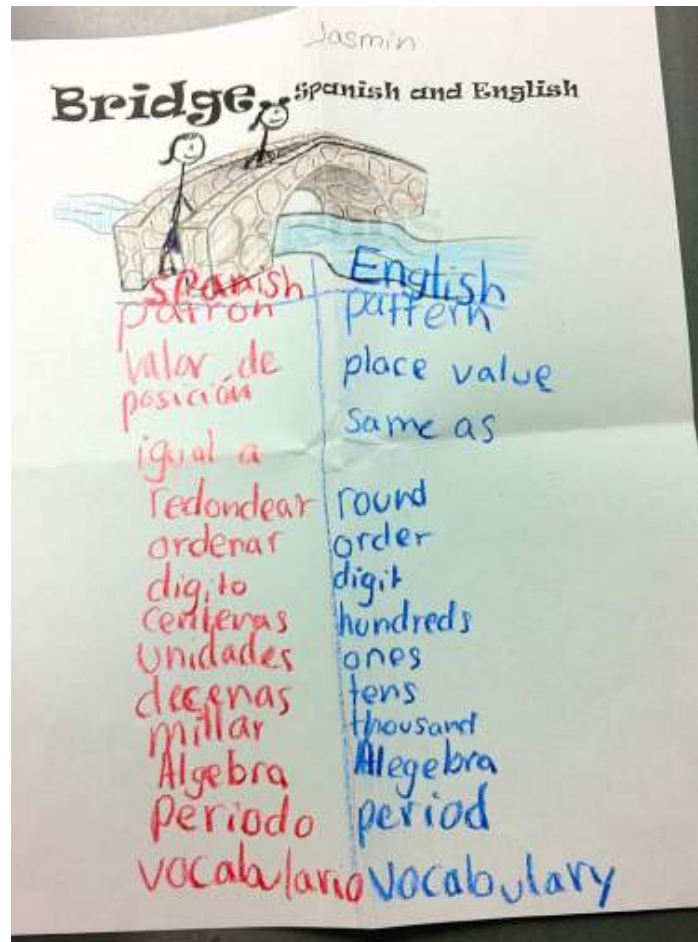 Jasmin
Bridge Spanish and English
Spanish English
patron pattern
valor de place value
posición
igual a same as
redondear round
ordenar order
digito digit
centenas hundreds
unidades ones
decenas tens
millar thousand
Algebra Alegebra
Periodo period
vocabulario vocabulary